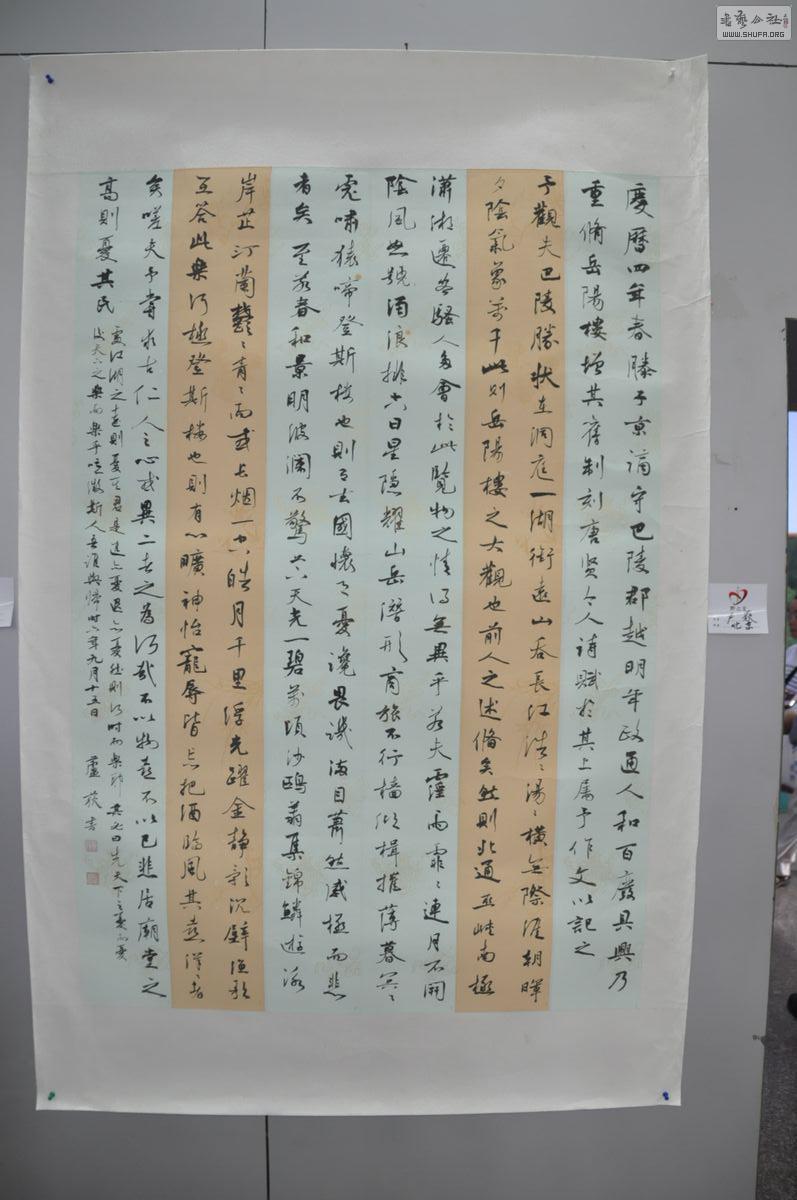 慶曆四年春滕子京謫守巴陵郡越明年政通人和百廢具興乃
重脩岳陽樓增其舊制刻唐賢今人詩賦於其上属予作文以記之
予觀夫巴陵勝狀在洞庭一湖銜遠山吞長江浩〻湯〻橫無際涯朝暉
夕陰氣象萬千此则岳陽樓之大觀也前人之述備矣然則北通巫峡南極
瀟湘遷客騷人多會於此覽物之情得無異乎若夫霪雨霏〻連月不開
陰風怒號濁浪排空日星隱耀山岳潛形商旅不行檣傾楫摧薄暮冥〻
虎嘯猿啼登斯樓也則有去國懷鄉憂讒畏譏滿目蕭然感極而悲
者矣至若春和景明波瀾不驚上下天光一碧萬頃沙鷗翕集錦鱗遊泳
岸芷汀蘭鬱〻青〻而或長烟一空皓月千里浮光躍金静影沉壁漁歌
互答此樂何極登斯樓也則有心曠神怡寵辱皆忘把酒臨風其喜洋〻者
矣嗟夫予嘗求古仁人之心或異二者之為何哉不以物喜不以己悲居廟堂之
高則憂其民
處江湖之遠則憂其君是進亦憂退亦憂然則何時而樂耶其必曰先天下之憂而憂
後天下之樂而樂乎噫微斯人吾誰與歸時六年九月十五日
蘆荻書
書藝公社
WWW.SHUFA.ORG